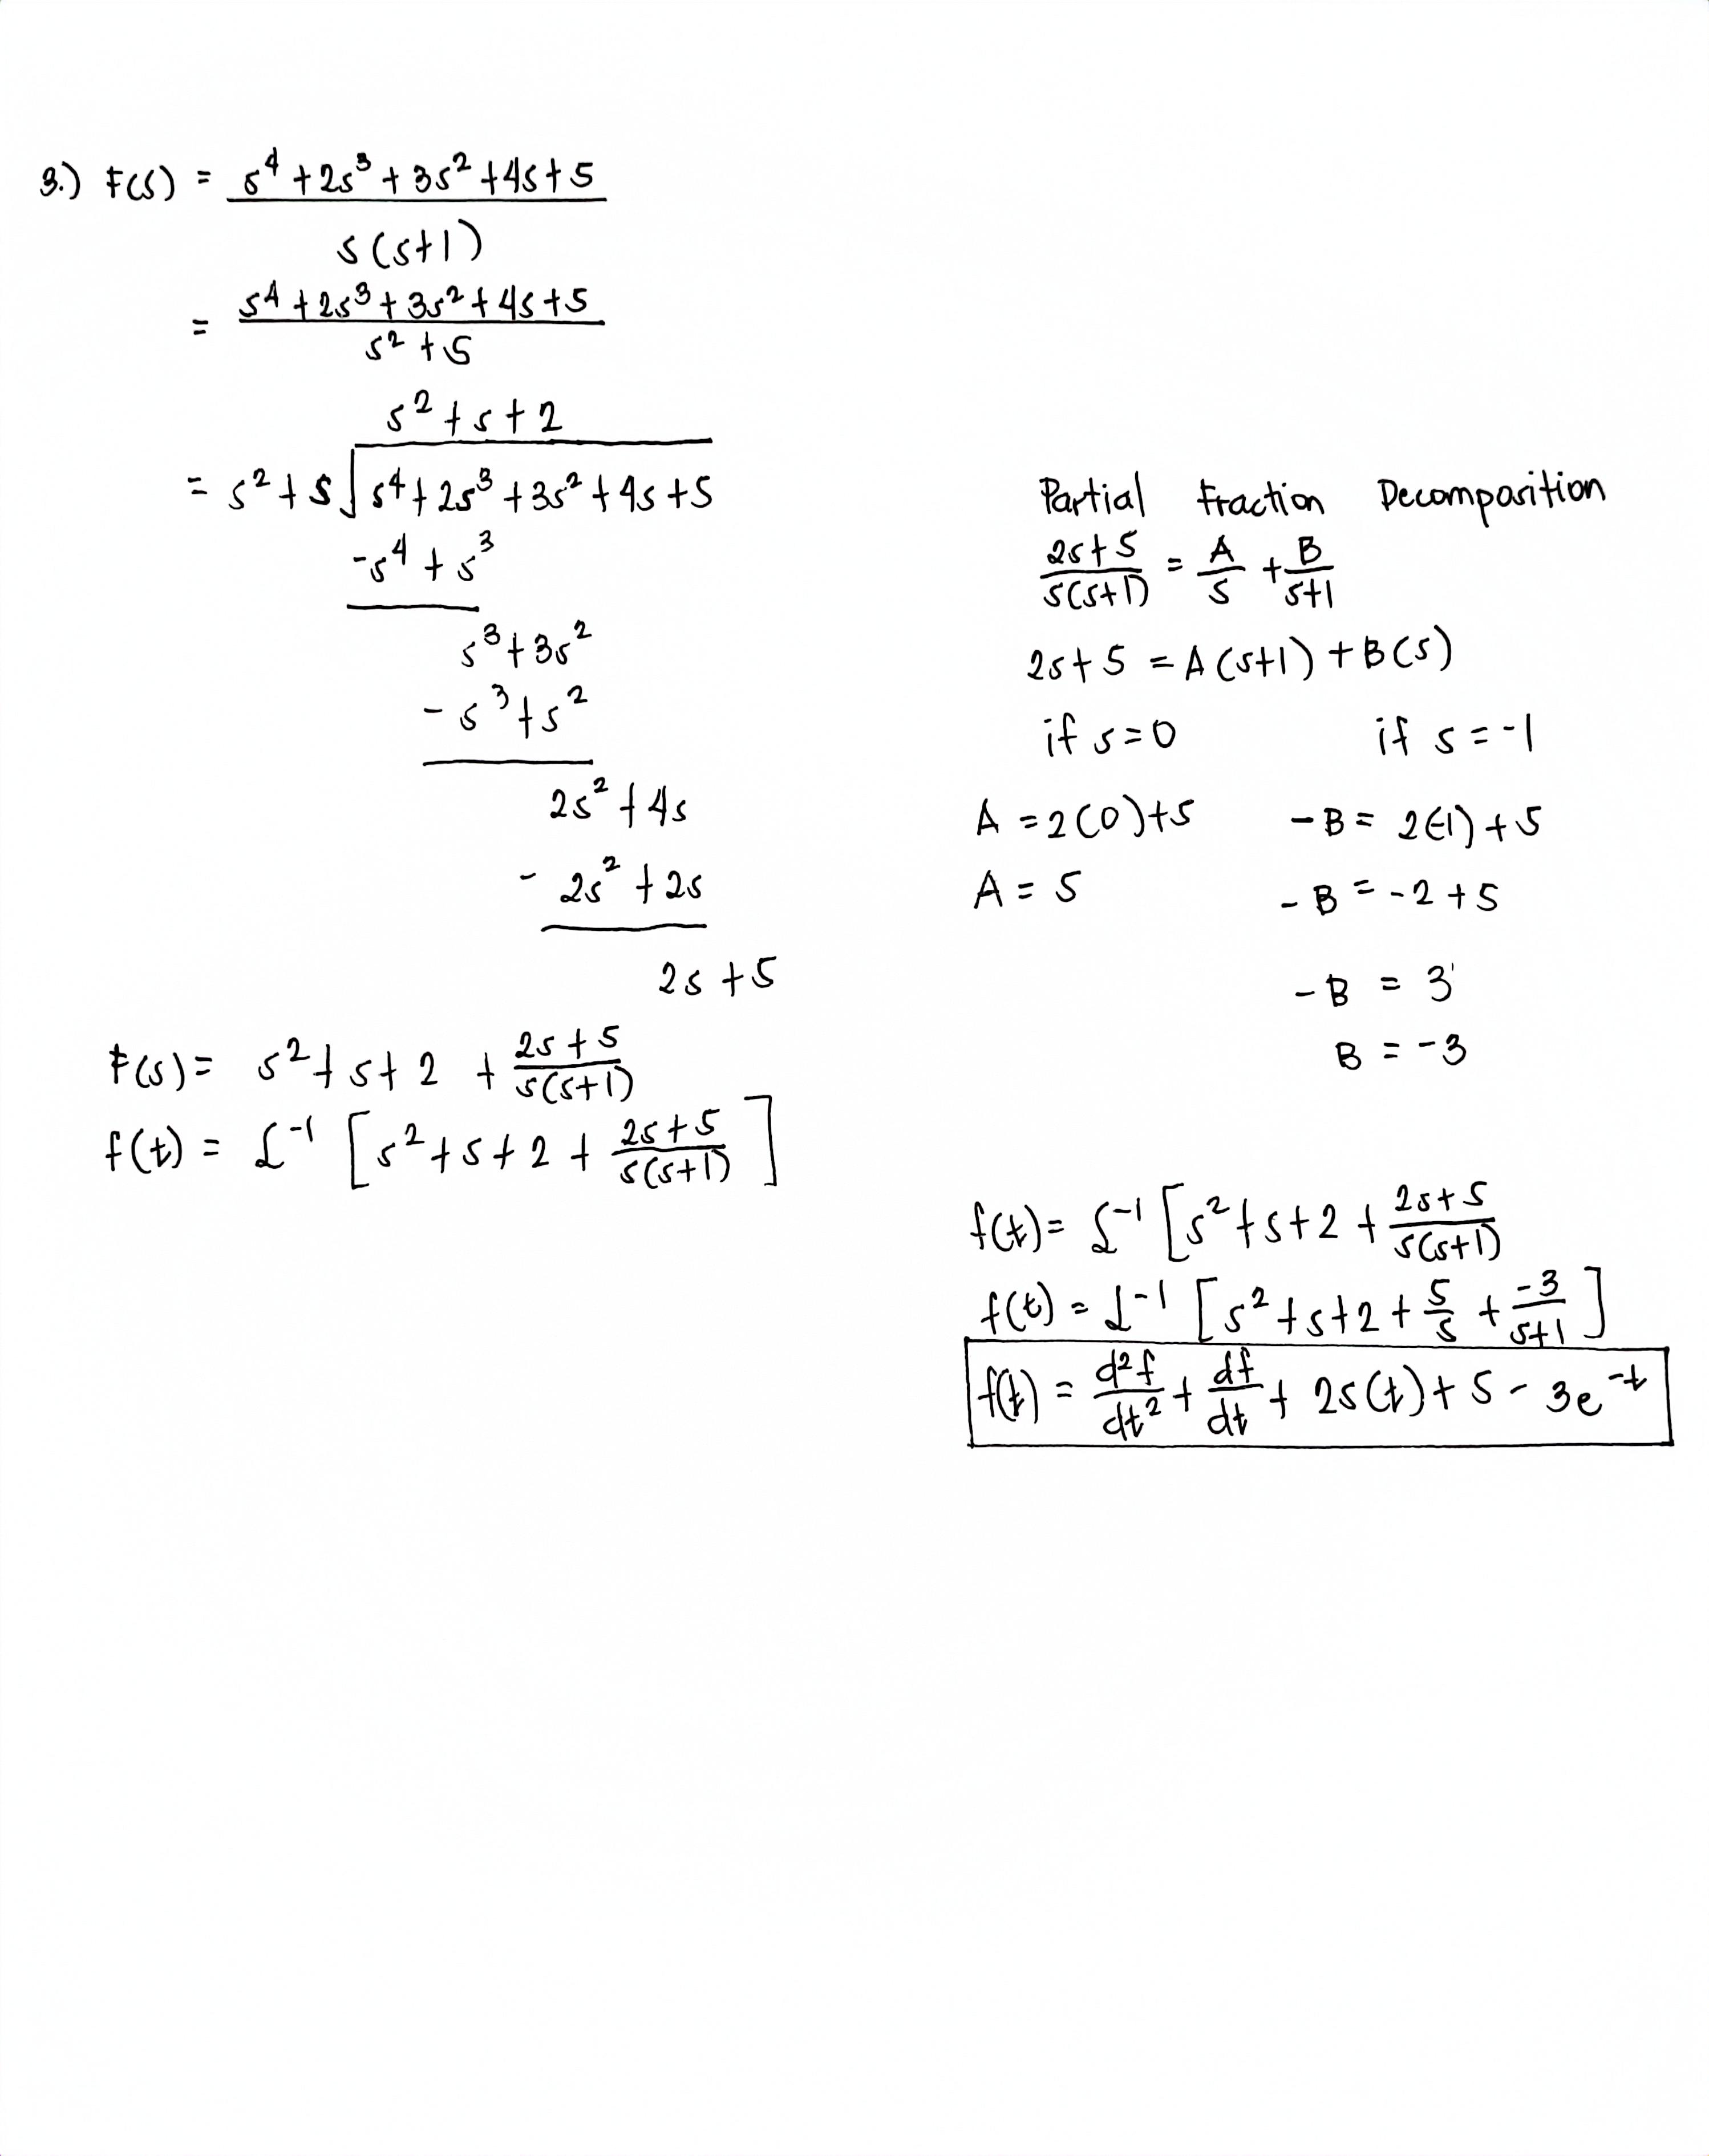 3.) F(s) = s⁴ + 2s³ + 3s² + 4s + 5
s(s+1)
= s⁴ + 2s³ + 3s² + 4s + 5
s² + s
s² + s + 2
= s² + s √ s⁴ + 2s³ + 3s² + 4s + 5
-s⁴ + s³
s³ + 3s²
- s³ + s²
2s² + 4s
- 2s² + 2s
2s + 5
F(s) = s² + s + 2 + (2s + 5)/(s(s+1))
f(t) = ℒ⁻¹ [s² + s + 2 + (2s + 5)/(s(s+1))]
Partial Fraction Decomposition
(2s + 5)/(s(s+1)) = A/s + B/(s+1)
2s + 5 = A(s+1) + B(s)
if s=0 if s = -1
A = 2(0)+5 -B = 2(-1) + 5
A = 5 -B = -2 + 5
-B = 3
B = -3
f(t) = ℒ⁻¹ [s² + s + 2 + (2s + 5)/(s(s+1))
f(t) = ℒ⁻¹ [s² + s + 2 + 5/s + -3/(s+1)]
f(t) = d²f/dt² + df/dt + 2s(t) + 5 - 3e⁻ᵗ